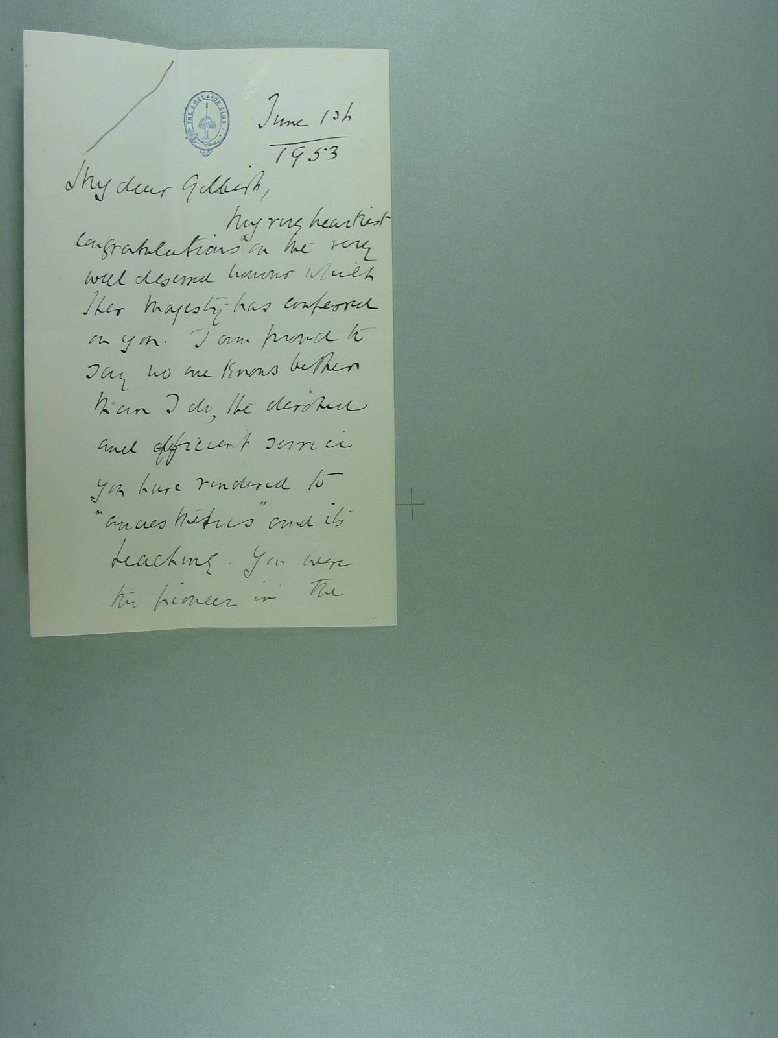 THE ADELAIDE CLUB
June 1st
1953
My dear Gilbert,
My very heartiest
congratulations on the very
well deserved honour which
Her Majesty has conferred
on you. I am proud to
say no one knows better
than I do, the devoted
and efficient service
you have rendered to
"anaesthetics" and its
teaching. You were
the pioneer in the